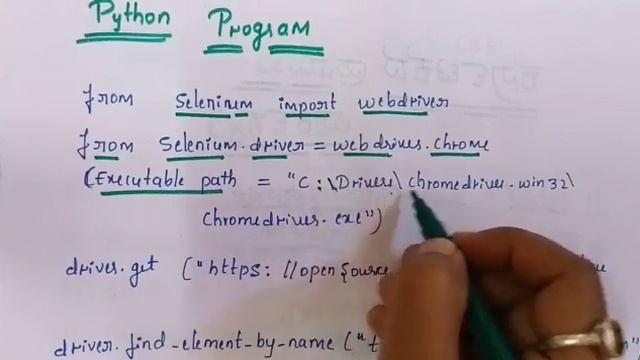 Python Program
from Selenium import webdriver
from Selenium.driver = webdriver.chrome
(Executable path = "C:\Drivers\chromedriver.win32\
Chromedriver.exe")
driver.get ("https: //opensource
driver.find-element-by-name ("t